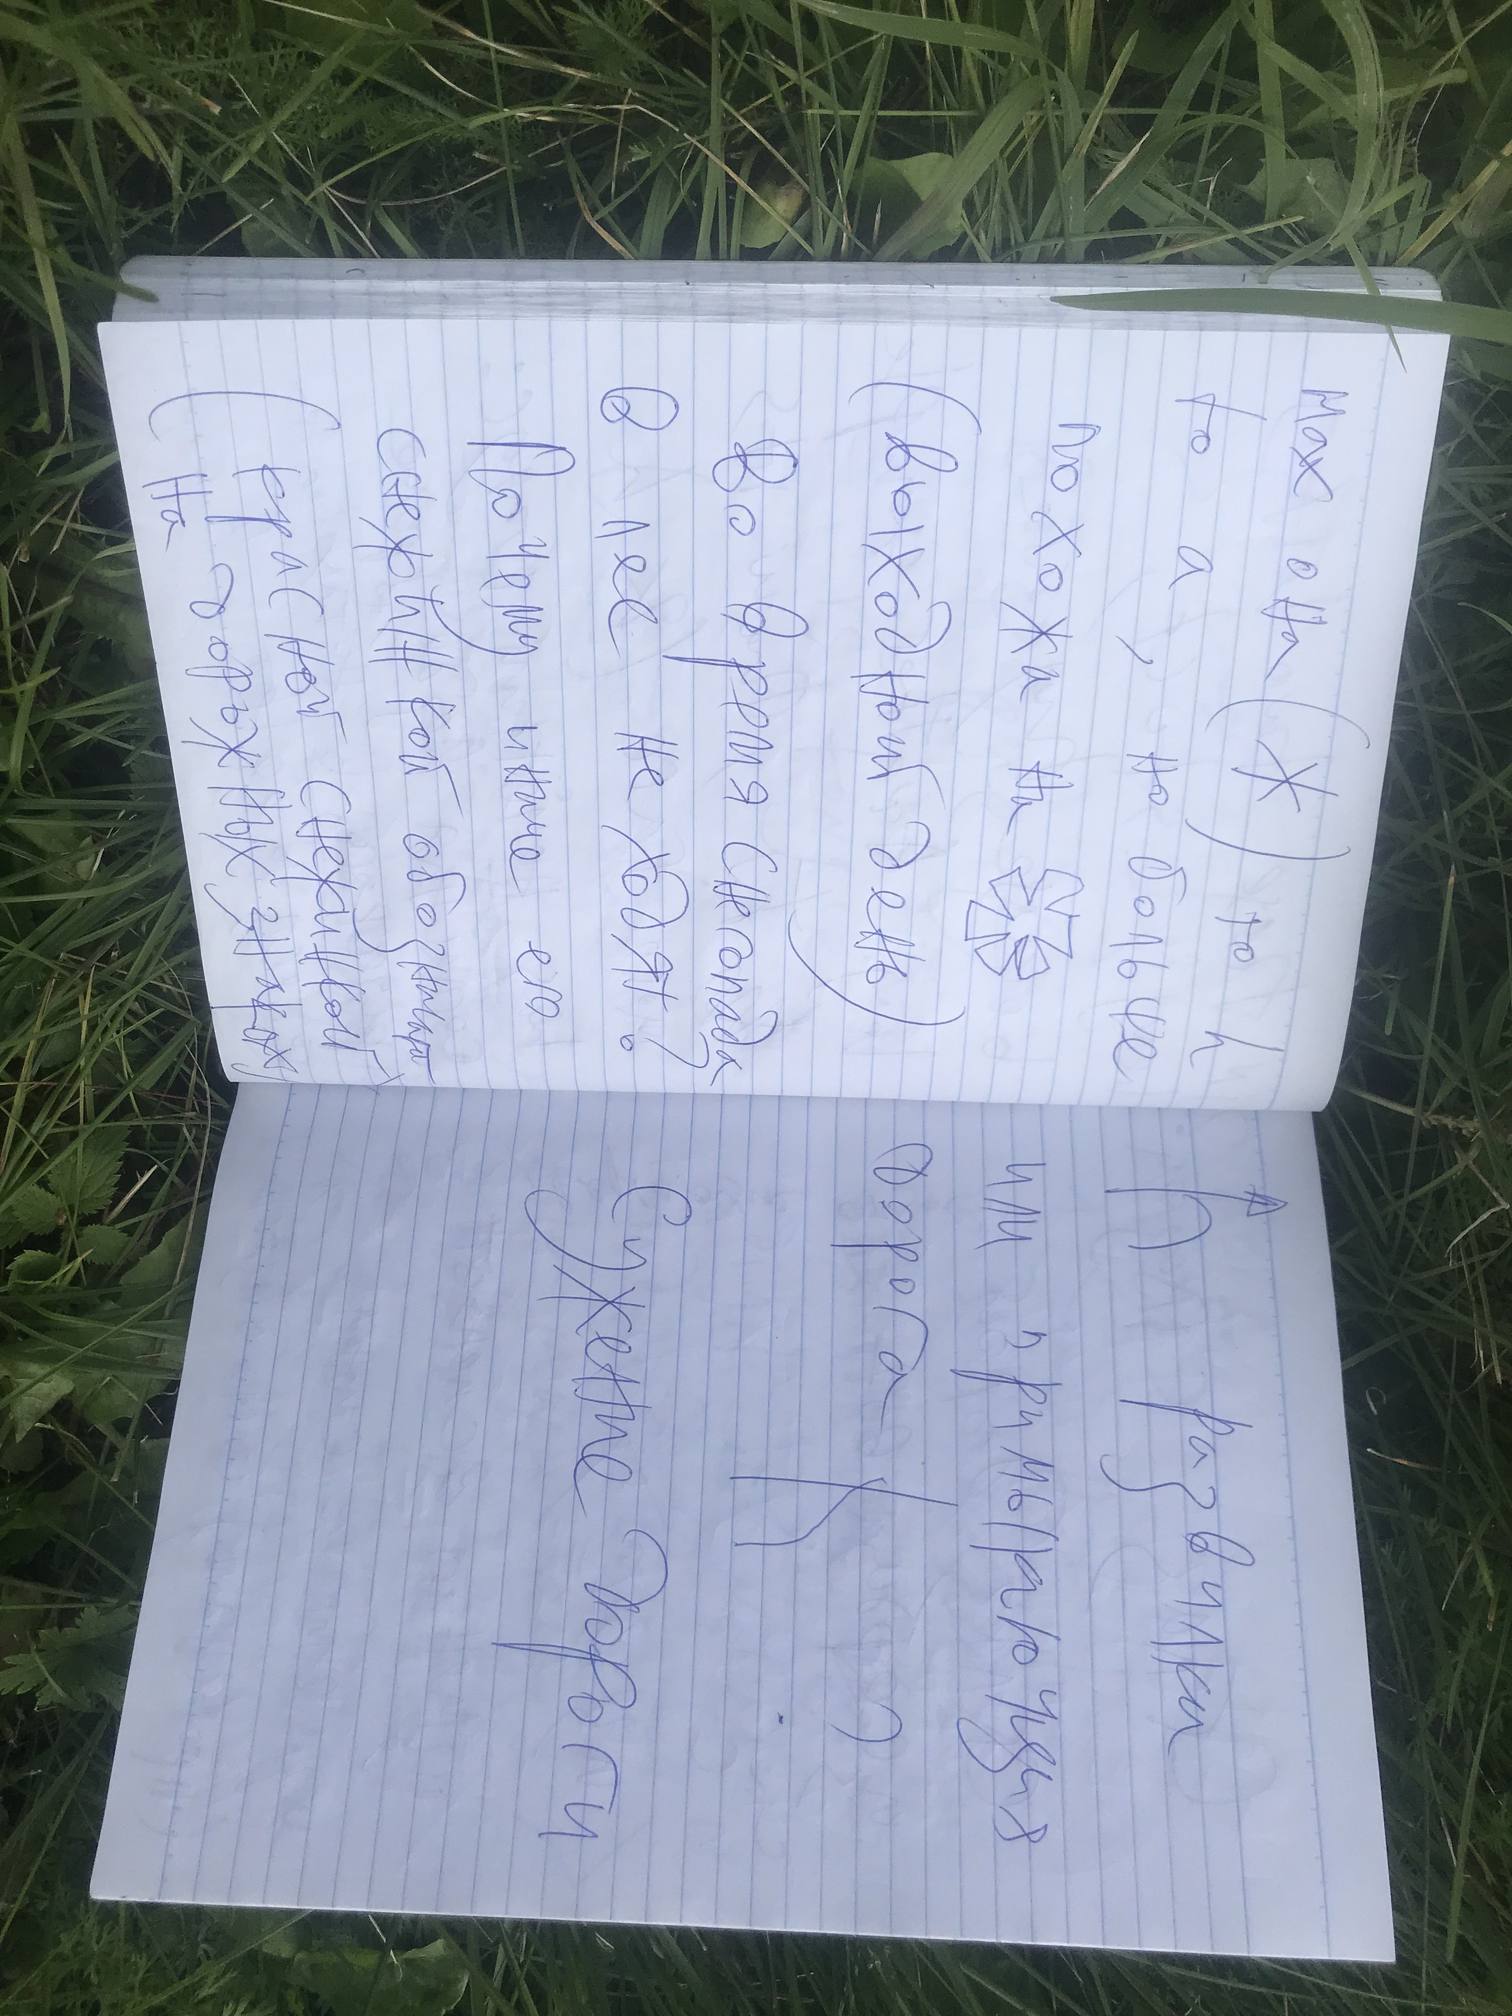 мах она (Ж) то h
то а, но больше
похожа на
(выходной день)
Во время снегопада
в лес не ходят?
Почему иначе его
снежинкой обозначают
(красной снежинкой
На дорожных знаках
развилка
или примыкающая
дорога
Сужение дороги